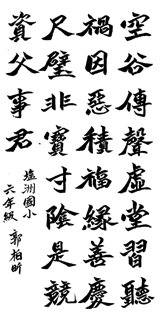 空谷傳聲虛堂習聽
禍因惡積福緣善慶
尺璧非寶寸陰是競
資父事君
塩洲國小
六年級 郭柏昕